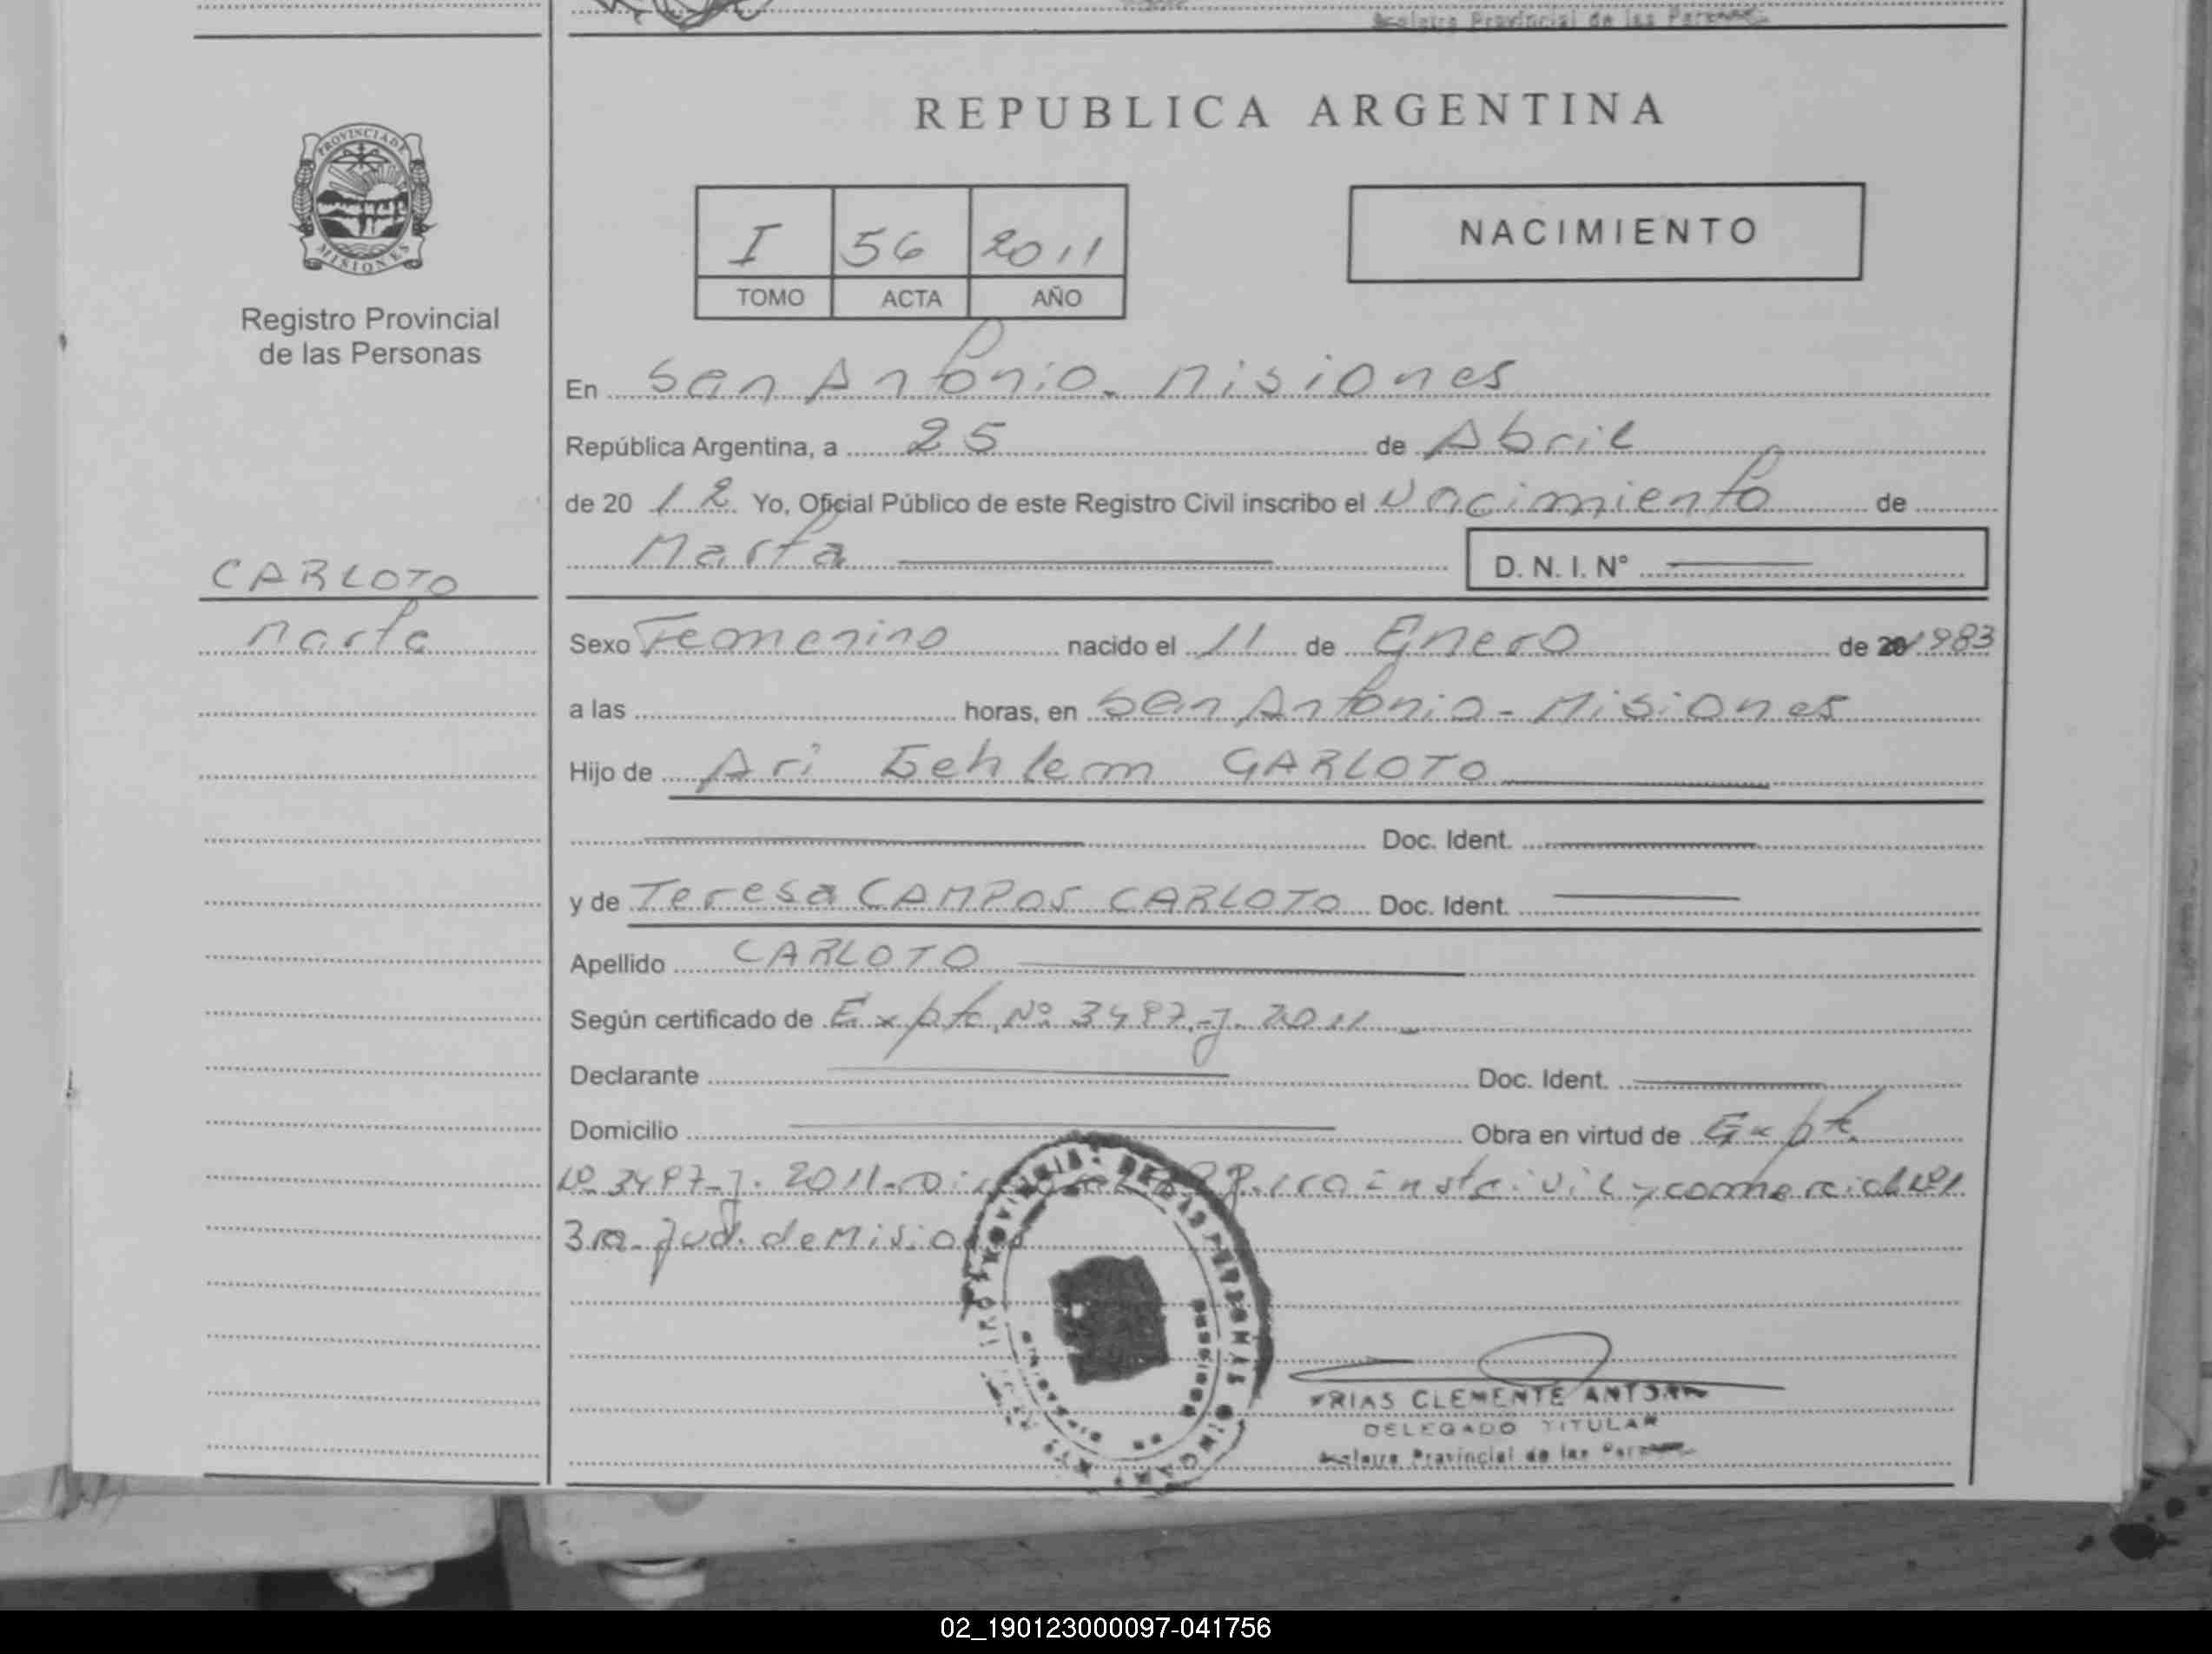 Provincial de las
PROVINCIA DE
MISIONES
Registro Provincial
de las Personas
CARLOTO
Marta
REPUBLICA ARGENTINA
I 56 2011
TOMO ACTA AÑO
NACIMIENTO
En San Antonio - Misiones
República Argentina, a 25 de Abril
de 20 12 Yo, Oficial Público de este Registro Civil inscribo el Nacimiento de
Marta D. N. I. N°
Sexo Femenino nacido el 11 de Enero de 1983
a las horas, en San Antonio - Misiones
Hijo de Ari CARLOTO
Doc. Ident.
y de Teresa CAMPOS CARLOTO Doc. Ident.
Apellido CARLOTO
Según certificado de Expte Nº 3497-J-2011-
Declarante Doc. Ident.
Domicilio Obra en virtud de Expte
Nº 3497-J-2011- civil y comercial Nº1
3ra. Jud. de Misiones
FRIAS CLEMENTE
DELEGADO TITULAR
Provincial de las
02_190123000097-041756